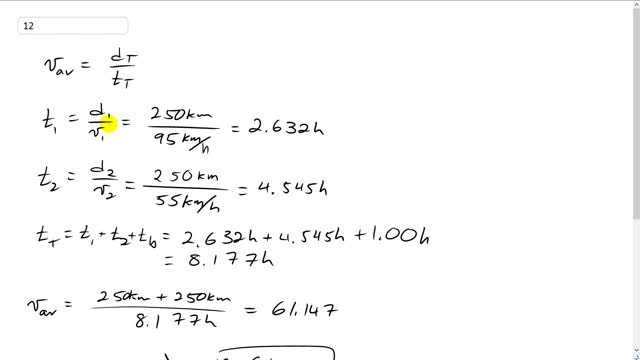 12
v_av = d_T / t_T
t_1 = d_1 / v_1 = 250km / 95km/h = 2.632h
t_2 = d_2 / v_2 = 250km / 55km/h = 4.545h
t_T = t_1 + t_2 + t_b = 2.632h + 4.545h + 1.00h
= 8.177h
v_av = 250km + 250km / 8.177h = 61.147